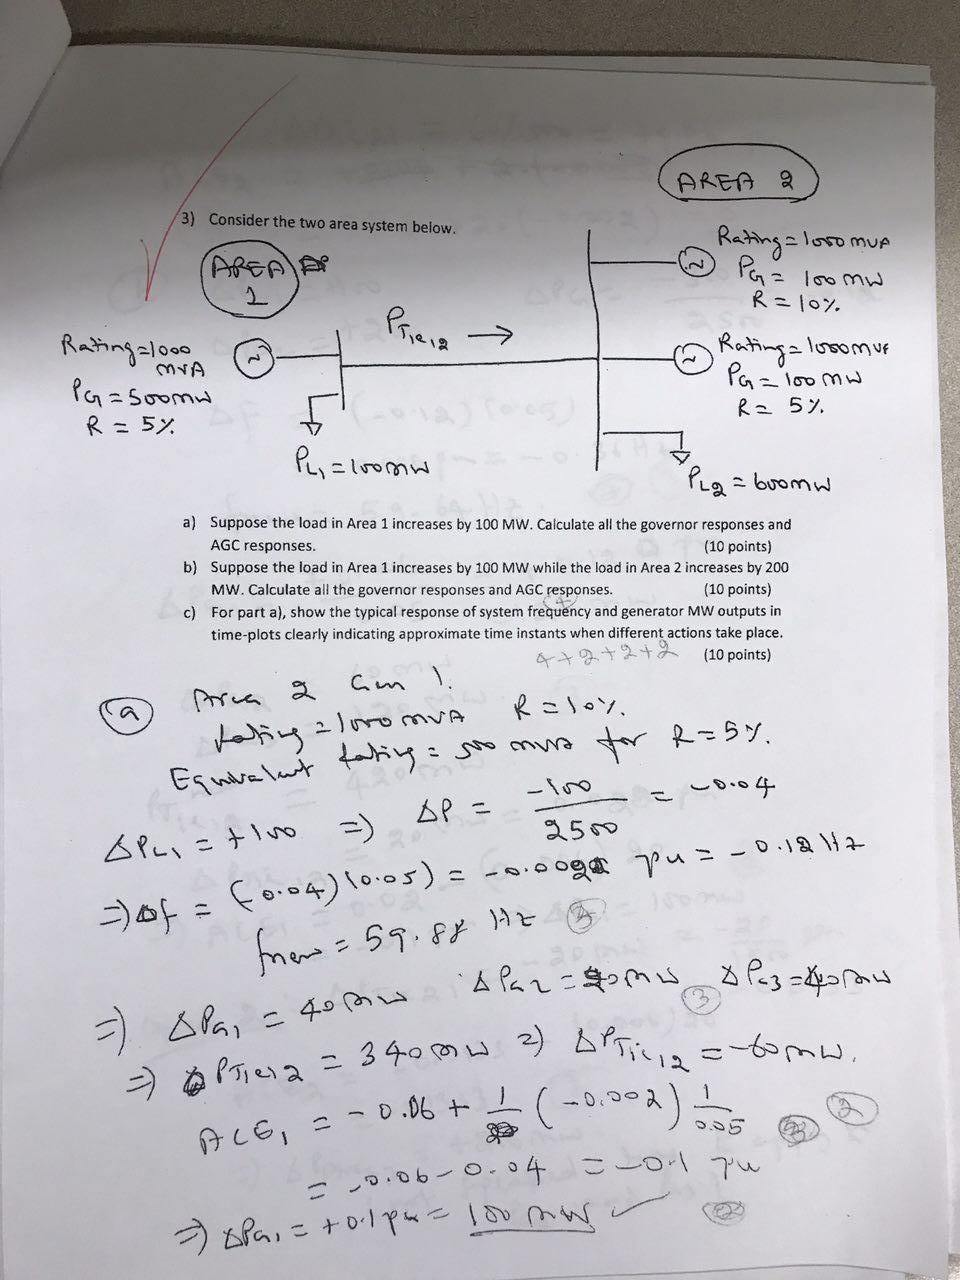 AREA 2
3) Consider the two area system below.
AREA
1
PTie12 →
Rating = 1000 MVA
PG = 100 MW
R = 10%
Rating = 1000
MVA
PG = 500 MW
R = 5%
Rating = 1000 MVA
PG = 100 MW
R = 5%
PL1 = 100 MW
PL2 = 600 MW
a) Suppose the load in Area 1 increases by 100 MW. Calculate all the governor responses and
AGC responses. (10 points)
b) Suppose the load in Area 1 increases by 100 MW while the load in Area 2 increases by 200
MW. Calculate all the governor responses and AGC responses. (10 points)
c) For part a), show the typical response of system frequency and generator MW outputs in
time-plots clearly indicating approximate time instants when different actions take place.
4+2+2+2 (10 points)
(a) Area 2 Gen 1.
Rating = 1000 MVA R = 10%.
Equivalent Rating = 500 MVA for R = 5%.
ΔPL1 = +100 ⇒ ΔP = -100 / 2500 = -0.04
⇒ Δf = (-0.04)(0.05) = -0.002 pu = -0.12 Hz
fnew = 59.88 Hz
⇒ ΔPG1 = 40 MW ΔPG2 = 20 MW (3) ΔPG3 = 40 MW
⇒ PTie12 = 340 MW ⇒ ΔPTie12 = -60 MW.
ACE1 = -0.06 + 1/ (-0.002) 1/0.05 (2)
= -0.06 - 0.04 = -0.1 pu
⇒ ΔPG1 = +0.1 pu = 100 MW ✓ (2)